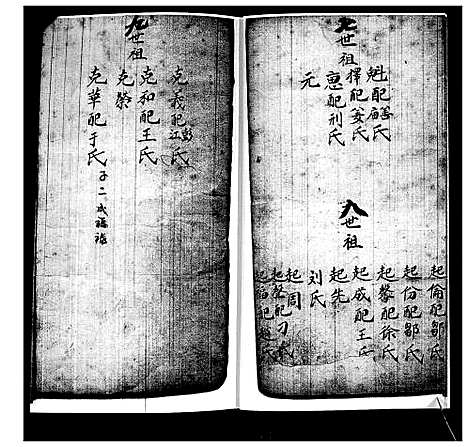 七世祖
魁配薛氏
擇配姜氏
惠配刑氏
元
八世祖
起倫配鄒氏
起份配鄒氏
起黎配徐氏
起成配王氏
起先
刘氏
起周
起發配刁氏
起配氏
九世祖
克義配江彭氏
克和配王氏
克榮
克華配于氏 子二 成福 禄